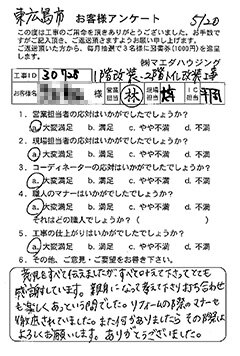 東広島市 お客様アンケート 5/20
この度は工事のご用命を頂きありがとうございました。お手数で
すがご記入頂き、ご返送頂きますようお願い申し上げます。
ご返送頂いた方から、毎月抽選で3名様に図書券(1000円)を進呈
します。 ㈱マエダハウジング
工事ID 30728 1階改装、2階トイレ改装工事
お客様名 様 営業担当 林 現場担当
1. 営業担当者の応対はいかがでしたでしょうか?
a.大変満足 b.満足 c.やや不満 d.不満
2. 現場担当者の応対はいかがでしたでしょうか?
a.大変満足 b.満足 c.やや不満 d.不満
3. コーディネーターの応対はいかがでしたでしょうか?
a.大変満足 b.満足 c.やや不満 d.不満
4. 職人のマナーはいかがでしたでしょうか?
a.大変満足 b.満足 c.やや不満 d.不満
それはどの職人でしょうか?( )
5. 工事の仕上がりはいかがでしたでしょうか?
a.大変満足 b.満足 c.やや不満 d.不満
6. その他、ご意見・ご要望をお書き下さい。
意見をすべて伝えましたが、すべて叶えて下さってとても
感謝しています。親身になって考えて下さりお打合わせ
も楽しくあっという間でした。リフォームの際のマナーも
徹底されていました。また何かありましたらその際は
よろしくお願いします。ありがとうございました。